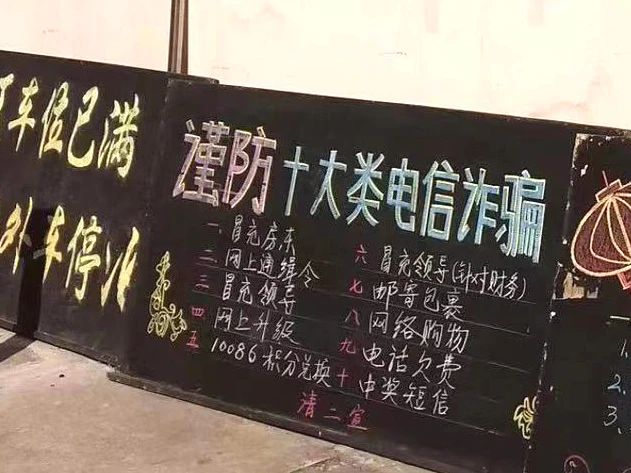 车位已满
外车停准
谨防十大类电信诈骗
一 冒充房东
二 网上通缉令
三 冒充领导
四 网上升级
五 10086积分兑换
六 冒充领导(针对财务)
七 邮寄包裹
八 网络购物
九 电话欠费
十 中奖短信
清二宣
1.
2.
3.